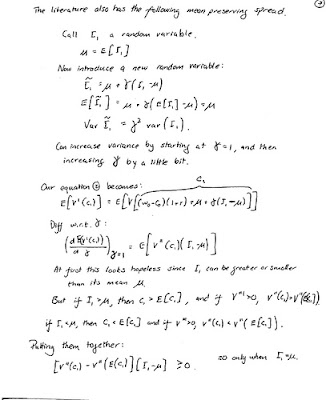 The literature also has the following mean preserving spread.
Call I₁ a random variable.
μ = E[I₁]
Now introduce a new random variable:
Ĩ₁ = μ + γ(I₁-μ)
E[Ĩ₁] = μ + γ(E[I₁]-μ) = μ
Var Ĩ₁ = γ² var(I₁).
Can increase variance by starting at γ=1, and then
increasing γ by a little bit.
C₁
Our equation becomes:
E[V'(C₁)] = E[V'[(w₀-C₀)(1+r)+μ+γ(I₁-μ)]]
Diff w.r.t. γ:
(dE[V'(C₁)]/dγ)γ=1 = E[V"(C₁)(I₁-μ)]
At first this looks hopeless since I₁ can be greater or smaller
than its mean μ.
But if I₁>μ, then C₁ > E[C₁], and if V"'>0, V"(C₁)>V"(E[C₁]).
if I₁<μ, then C₁ < E[C₁] and if V"'>0, V"(C₁) < V"(E[C₁]).
Putting them together:
[V"(C₁) - V"(E(C₁)][I₁-μ] ≥ 0. =0 only when I₁=μ.